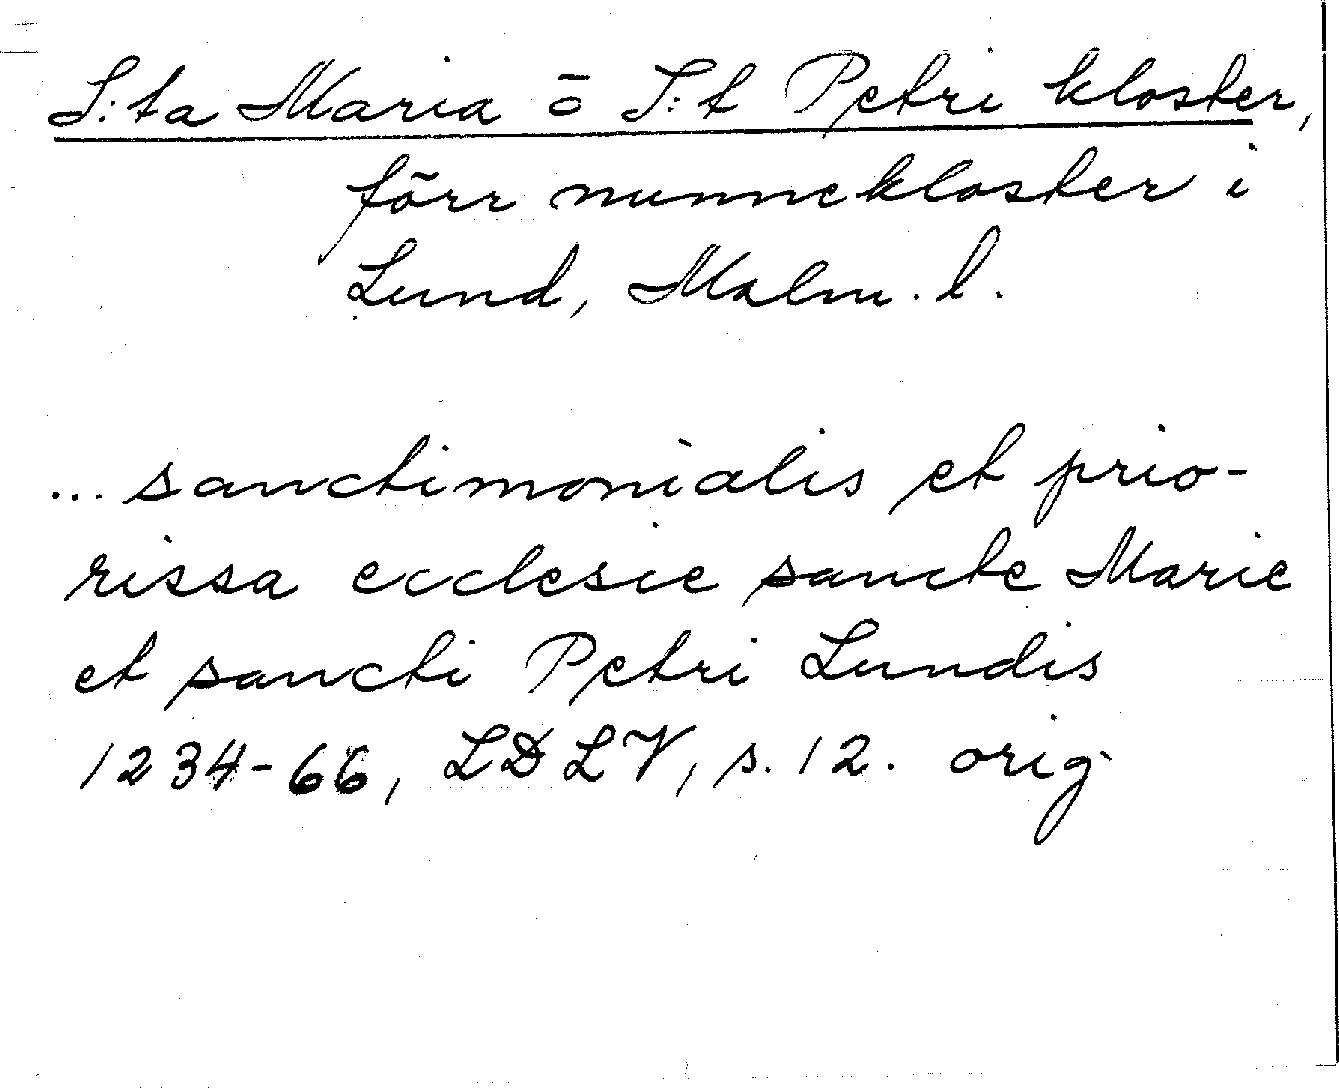 S:ta Maria o S:t Petri kloster,
förr nunnekloster i
Lund, Malm. l.
... sanctimonialis et prio-
rissa ecclesie sancte Marie
et sancti Petri Lundis
1234-66, LDLV, s. 12. orig.